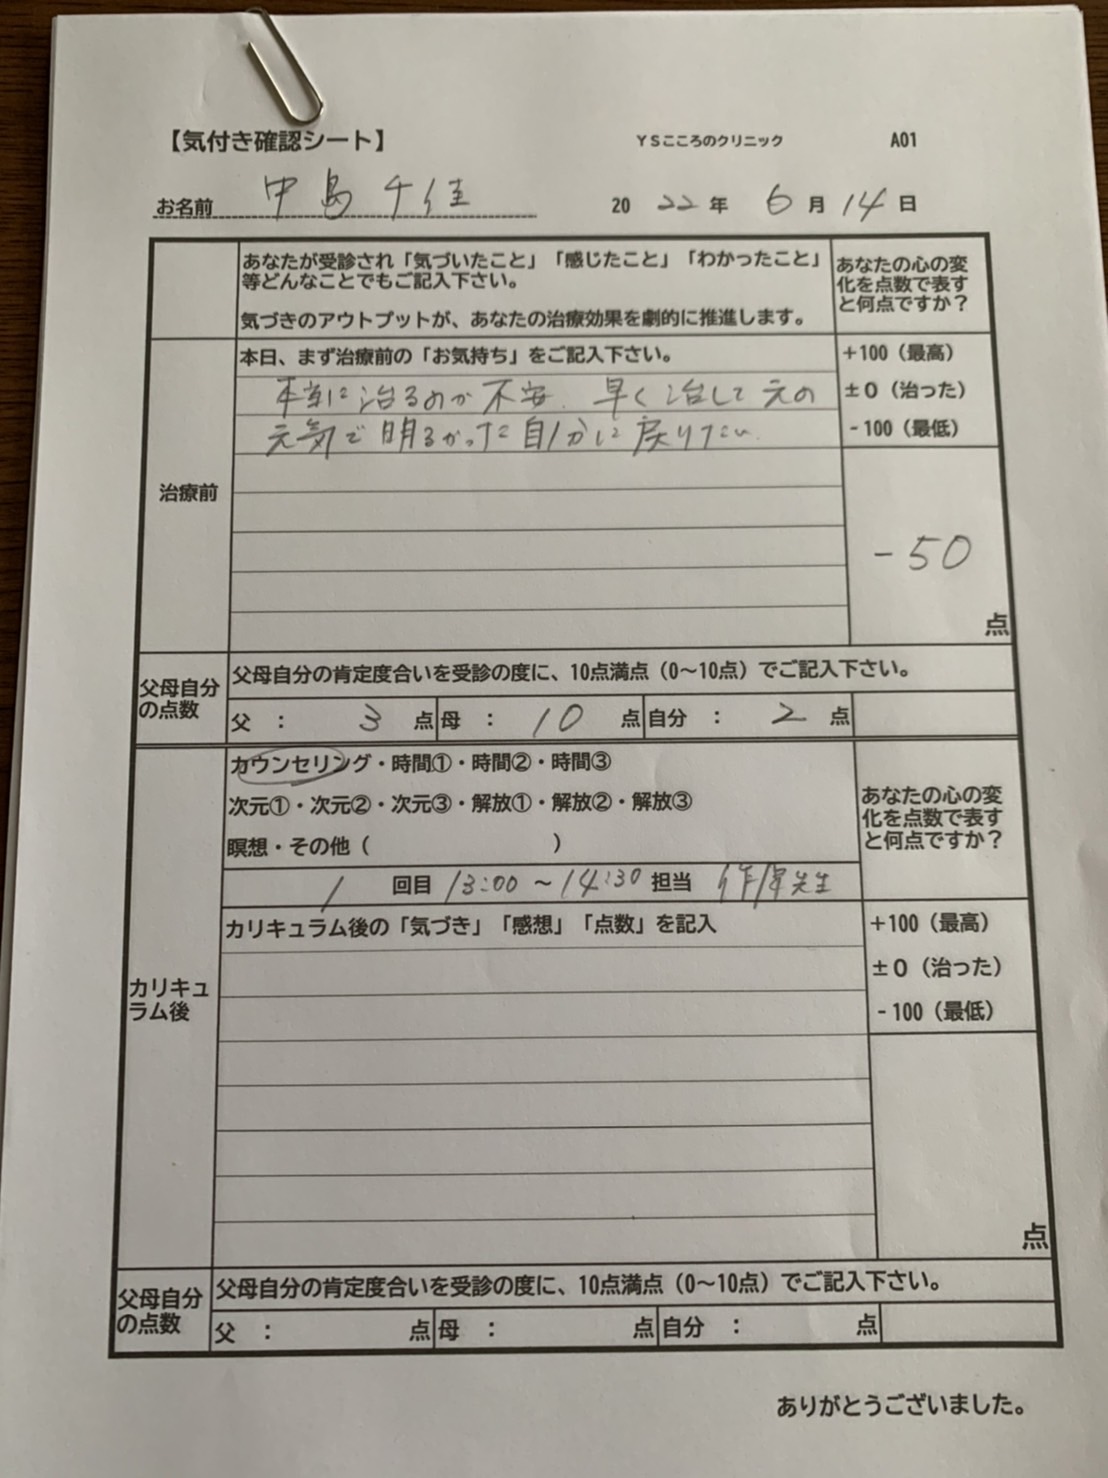 【気付き確認シート】 YSこころのクリニック A01
お名前 中島千佳 2022年6月14日
あなたが受診され「気づいたこと」「感じたこと」「わかったこと」
等どんなことでもご記入下さい。
気づきのアウトプットが、あなたの治療効果を劇的に推進します。
あなたの心の変
化を点数で表す
と何点ですか？
治療前
本日、まず治療前の「お気持ち」をご記入下さい。
本当に治るのか不安. 早く治して元の
元気で明るかった自分に戻りたい.
+100（最高）
±0（治った）
-100（最低）
-50
点
父母自分
の点数
父母自分の肯定度合いを受診の度に、10点満点（0～10点）でご記入下さい。
父 ： 3 点 母 ： 10 点 自分 ： 2 点
カウンセリング・時間①・時間②・時間③
次元①・次元②・次元③・解放①・解放②・解放③
瞑想・その他（ ）
1 回目 13:00 ～14:30 担当 先生
あなたの心の変
化を点数で表す
と何点ですか？
カリキュ
ラム後
カリキュラム後の「気づき」「感想」「点数」を記入
+100（最高）
±0（治った）
-100（最低）
点
父母自分
の点数
父母自分の肯定度合いを受診の度に、10点満点（0～10点）でご記入下さい。
父 ： 点 母 ： 点 自分 ： 点
ありがとうございました。